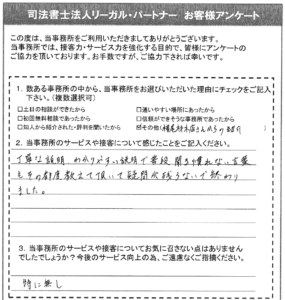 司法書士法人リーガル・パートナー お客様アンケート
この度は、当事務所をご利用いただきましてありがとうございます。
当事務所では、接客力・サービス力を強化する目的で、皆様にアンケートの
ご協力を頂いております。お手数ですが、ご協力下されば幸いです。
1. 数ある事務所の中から、当事務所をお選びいただいた理由にチェックをご記入
下さい。(複数選択可)
□土日の相談ができたから □通いやすい場所にあったから
□初回無料相談であったから □信頼ができそうな事務所であったから
□知人から紹介された・評判を聞いたから ☑その他( 材木店さんからの紹介 )
2. 当事務所のサービスや接客について感じたことをご記入ください。
丁寧な説明 わかりやすい説明で普段 聞き慣れない言葉
もその都度教えて頂いて疑問点残らないで終わり
ました。
3. 当事務所のサービスや接客についてお気に召さない点はありません
でしたでしょうか?今後のサービス向上の為、ご遠慮なくご指摘ください。
特に無し